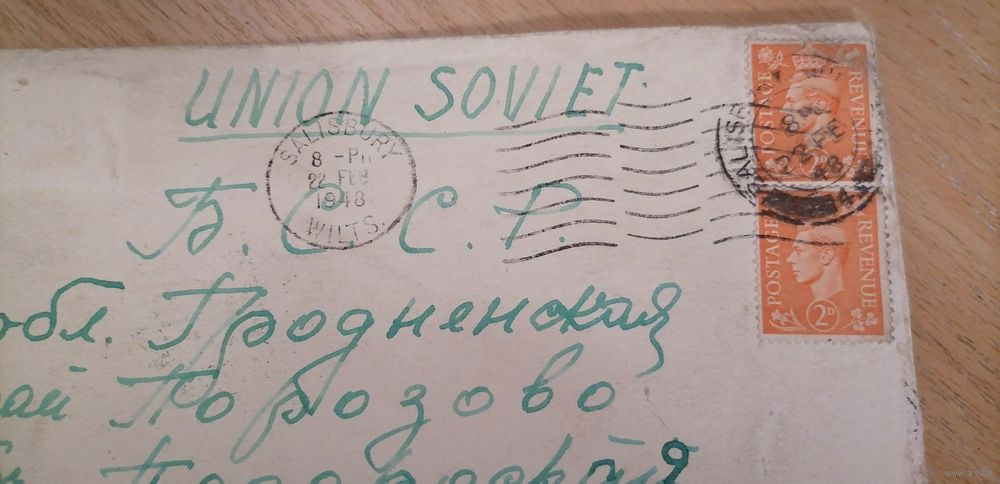 UNION SOVIET.
SALISBURY
8 - PM
22 FEB
1948
WILTS.
POSTAGE REVENUE
2D
POSTAGE REVENUE
2D
Б. С. С. Р.
обл. Гродненская
Порозово